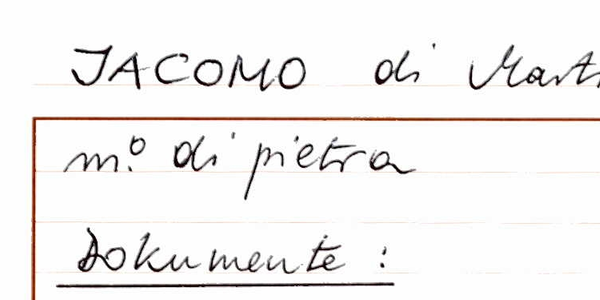 JACOMO di Mart
m.º di pietra
Dokumente :